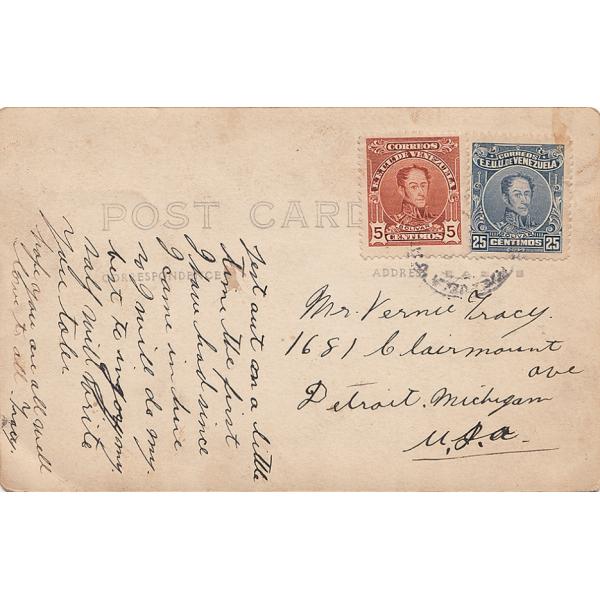 CORREOS
E.E.U.U. DE VENEZUELA
BOLIVAR
5 5
CENTIMOS
CORREOS
E.E.U.U. DE VENEZUELA
BOLIVAR
25 25
CENTIMOS
POST CARD
CORRESPONDENCE
ADDRESS
Just out on a little
time the first
I have had since
I came in here
so I will do my
best to injoy my
self will Write
you later
hope you are all well
love to all
Mr. Vernie Tracy.
1681 Clairmount
ave
Detroit. Michigan
U.S.a.